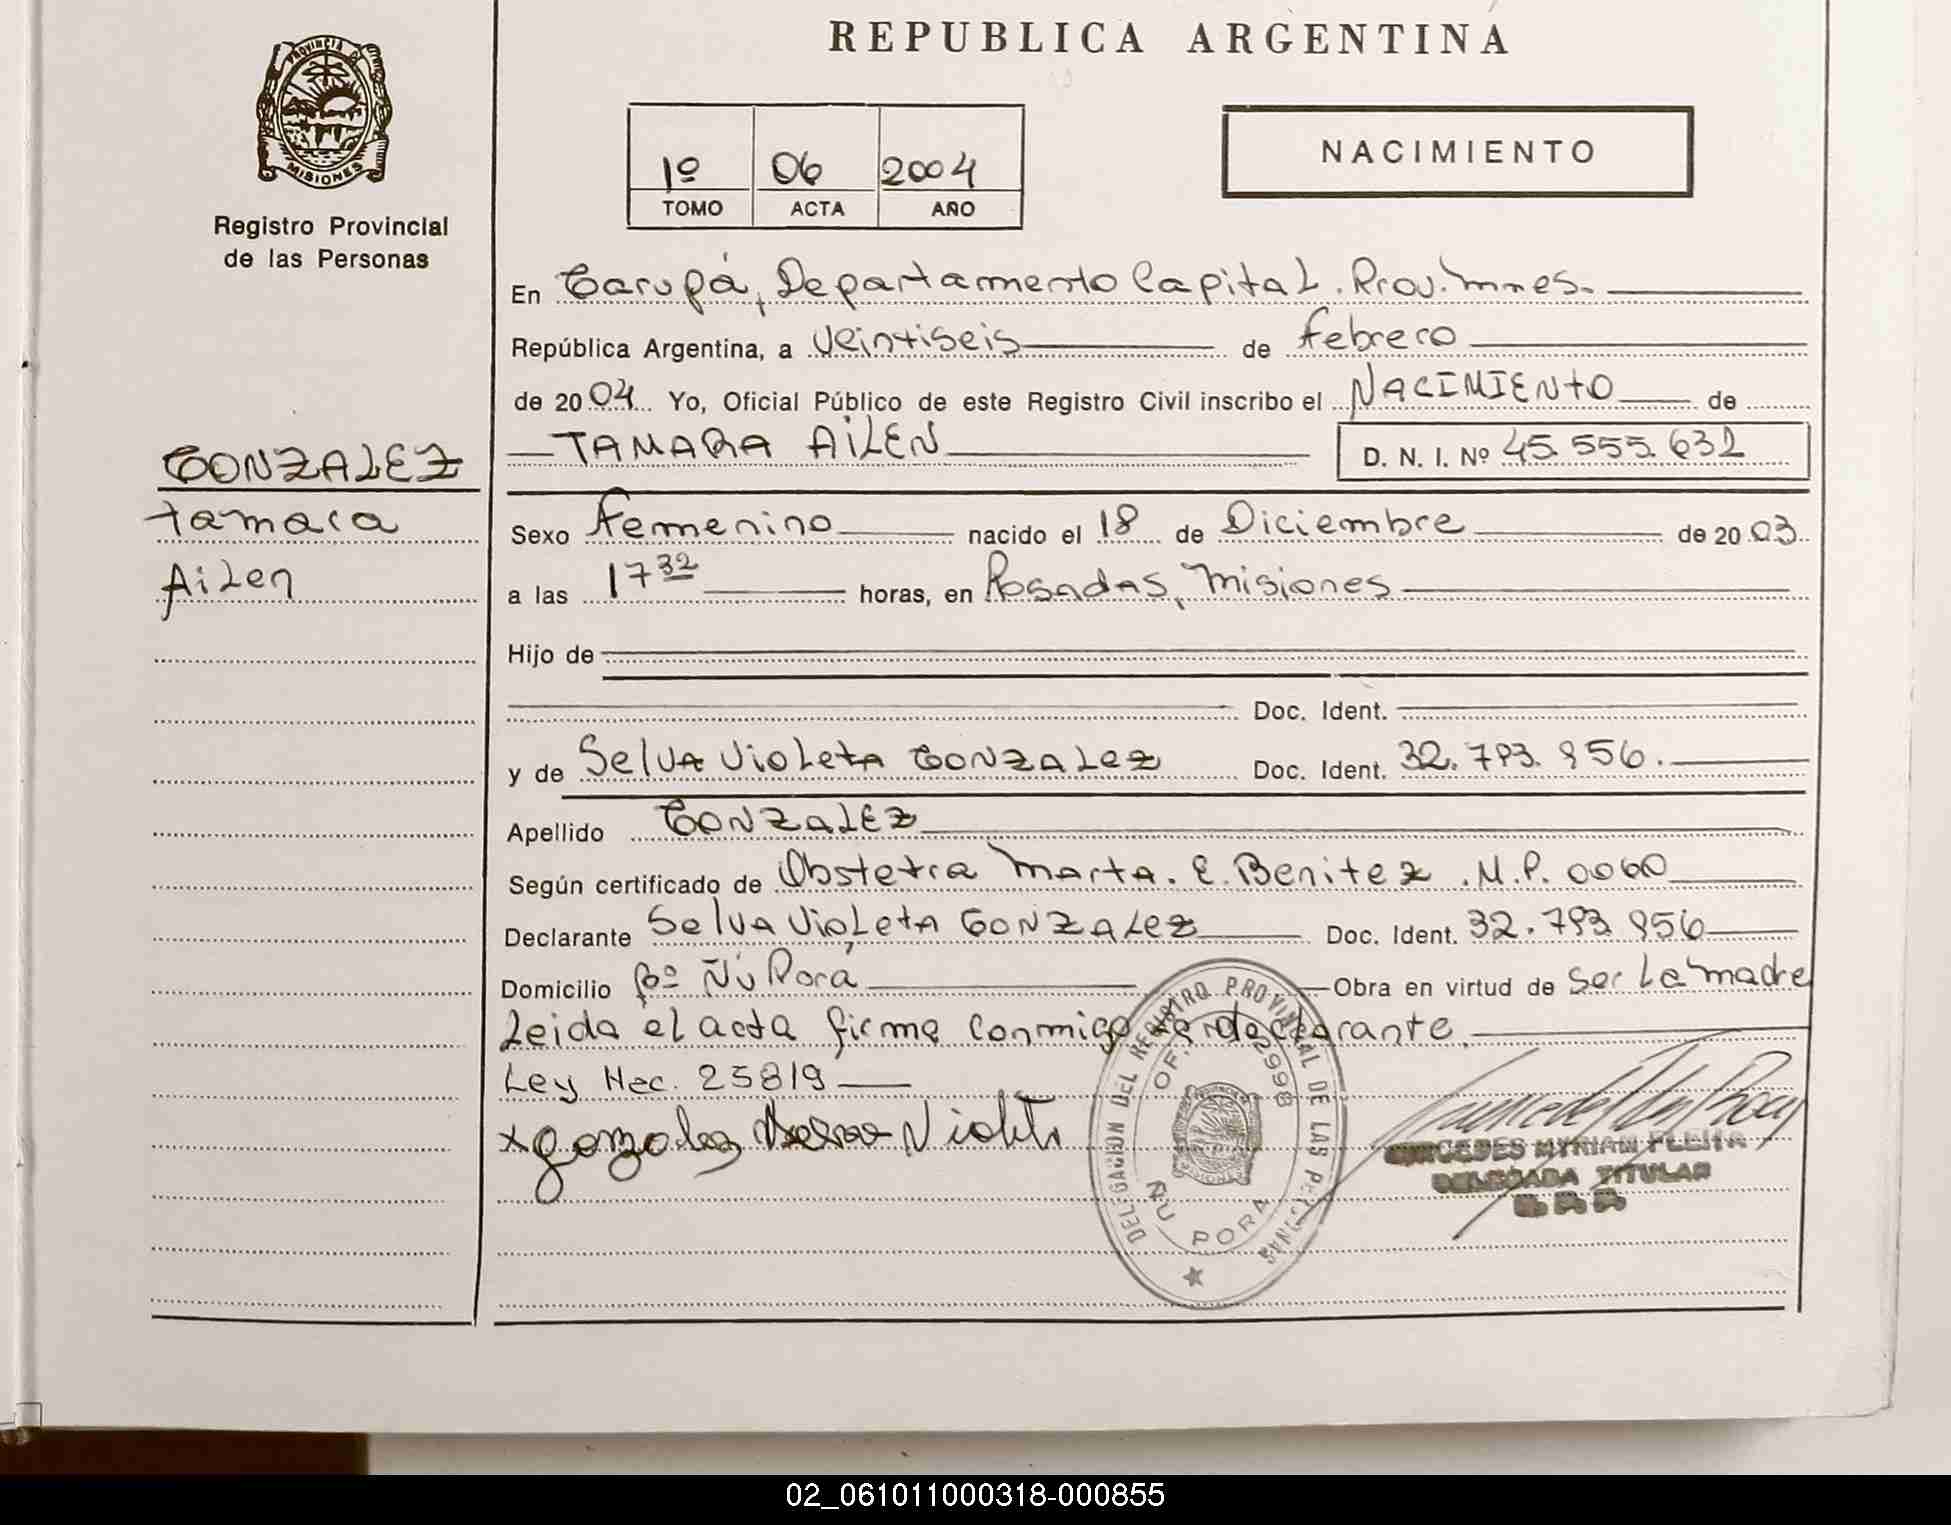 REPUBLICA ARGENTINA
PROVINCIA DE
MISIONES
Registro Provincial
de las Personas
1º 06 2004
TOMO ACTA AÑO
NACIMIENTO
En Garupá, Departamento Capital. Prov. Mnes.
República Argentina, a veintiseis de febrero
de 2004. Yo, Oficial Público de este Registro Civil inscribo el NACIMIENTO de
TAMARA AiLEN D. N. I. Nº 45.555.632
GONZALEZ
Tamara
Ailen
Sexo Femenino nacido el 18 de Diciembre de 2003.
a las 17 32 horas, en Posadas, Misiones
Hijo de
Doc. Ident.
y de Selva Violeta GONZALez Doc. Ident. 32.793.856.
Apellido GONZALEZ
Según certificado de Obstetra Marta. E. Benitez. M.P. 0060
Declarante Selva Violeta GONZALez Doc. Ident. 32.793.856
Domicilio Bº Ñú Porá Obra en virtud de ser la madre
Leida el acta firma conmigo la declarante.
Ley Nac. 25819
x gonzalez Violeta
DELEGACION DEL REGISTRO PROVINCIAL DE LAS PERSONAS
OF. 2998
ÑU PORA
MERCEDES MYRIAM FLEITA
DELEGADA TITULAR
02_061011000318-000855